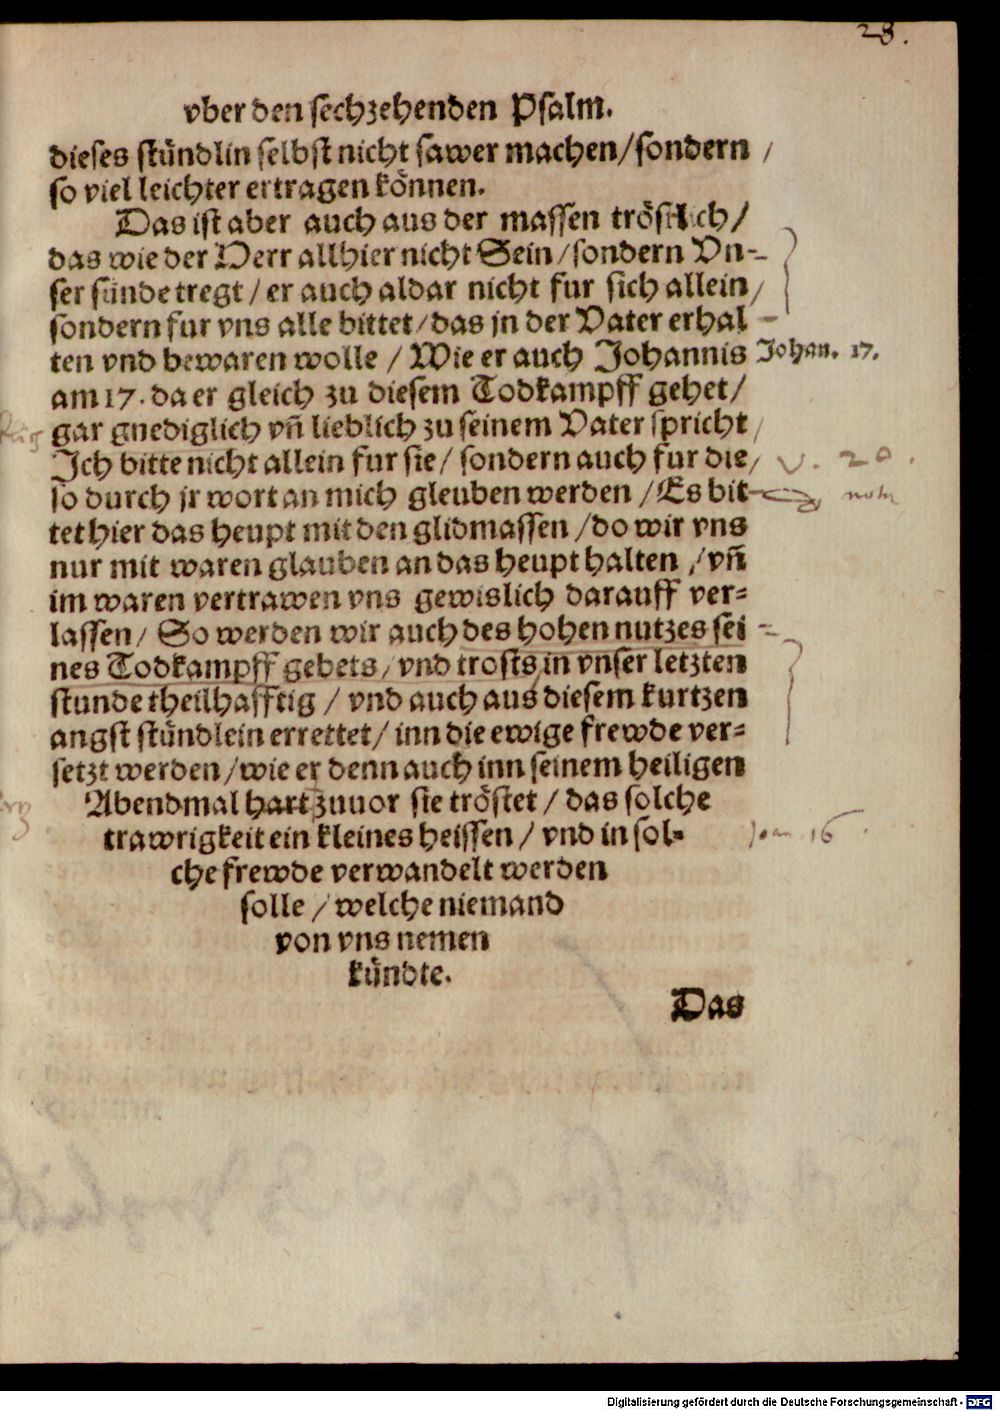 28.
vber den sechzehenden Psalm.
dieses stündlin selbst nicht sawer machen/sondern /
so viel leichter ertragen können.
Das ist aber auch aus der massen tröstlich/
das wie der Herr allhier nicht Sein/sondern Vn-
ser sünde tregt/er auch aldar nicht fur sich allein/
sondern fur vns alle bittet/das jn der Vater erhal
ten vnd bewaren wolle / Wie er auch Johannis Johan. 17.
am 17. da er gleich zu diesem Todkampff gehet/
gar gnediglich vñ lieblich zu seinem Vater spricht/
Ich bitte nicht allein fur sie/ sondern auch fur die/ v. 20.
so durch jr wort an mich gleuben werden /Es bit-
tet hier das heupt mit den glidmassen /do wir vns
nur mit waren glauben an das heupt halten /vñ
im waren vertrawen vns gewislich darauff ver=
lassen/ So werden wir auch des hohen nutzes sei
nes Todkampff gebets/vnd trosts in vnser letzten
stunde theilhafftig / vnd auch aus diesem kurtzen
angst stündlein errettet/ inn die ewige frewde ver=
setzt werden/wie er denn auch inn seinem heiligen
Abendmal hart zuuor sie tröstet / das solche
trawrigkeit ein kleines heissen / vnd in sol= Joan 16
che frewde verwandelt werden
solle /welche niemand
von vns nemen
kündte.
Das
Digitalisierung gefördert durch die Deutsche Forschungsgemeinschaft - DFG